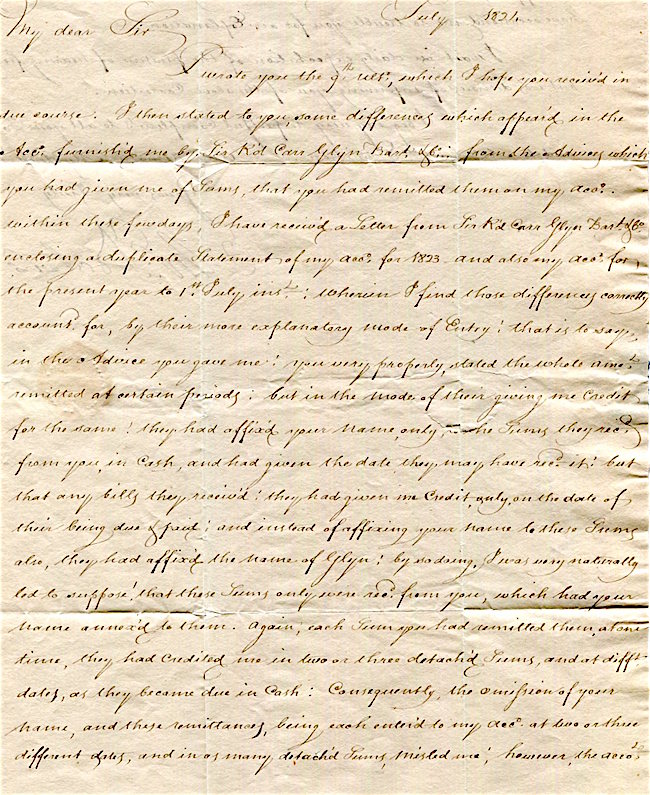 July 1824
My dear Sir
I wrote you the 9th ulto, which I hope you receiv'd in
due course. I then stated to you, some differences which appear'd in the
Acct. furnish'd me by Sir R'd Carr Glyn Bart. & Co. from the Advices which
you had given me of Sums, that you had remitted them on my Acco.
within these few days, I have receiv'd a Letter from Sir R'd Carr Glyn Bart. & Co
enclosing a duplicate Statement of my Acco. for 1823 and also my Acco. for
the present year to 1st. July inst.: wherein I find those differences correctly
accountd. for, by their more explanatory mode of Entry: that is to say,
in the Advice you gave me! you very properly stated the whole amot.
remitted at certain periods: but in the mode of their giving me Credit
for the same! they had affixd your name, only, to the Sums they recd.
from you in Cash, and had given the date they may have recd. it: but
that any bills they receiv'd: they had given me Credit, only, on the date of
their being due & paid: and instead of affixing your name to these Sums
also, they had affix'd the name of Glyn: by so doing, I was very naturally
led to suppose, that these Sums only were recd. from you, which had your
name annex'd to them. Again, each Sum you had remitted them, at one
time, they had Credited me in two or three detach'd Sums, and at difft.
dates, as they became due in Cash: Consequently, the omission of your
name, and these remittances, being each enter'd to my Acco. at two or three
different dates, and in as many detach'd Sums, misled me; however, the acco.